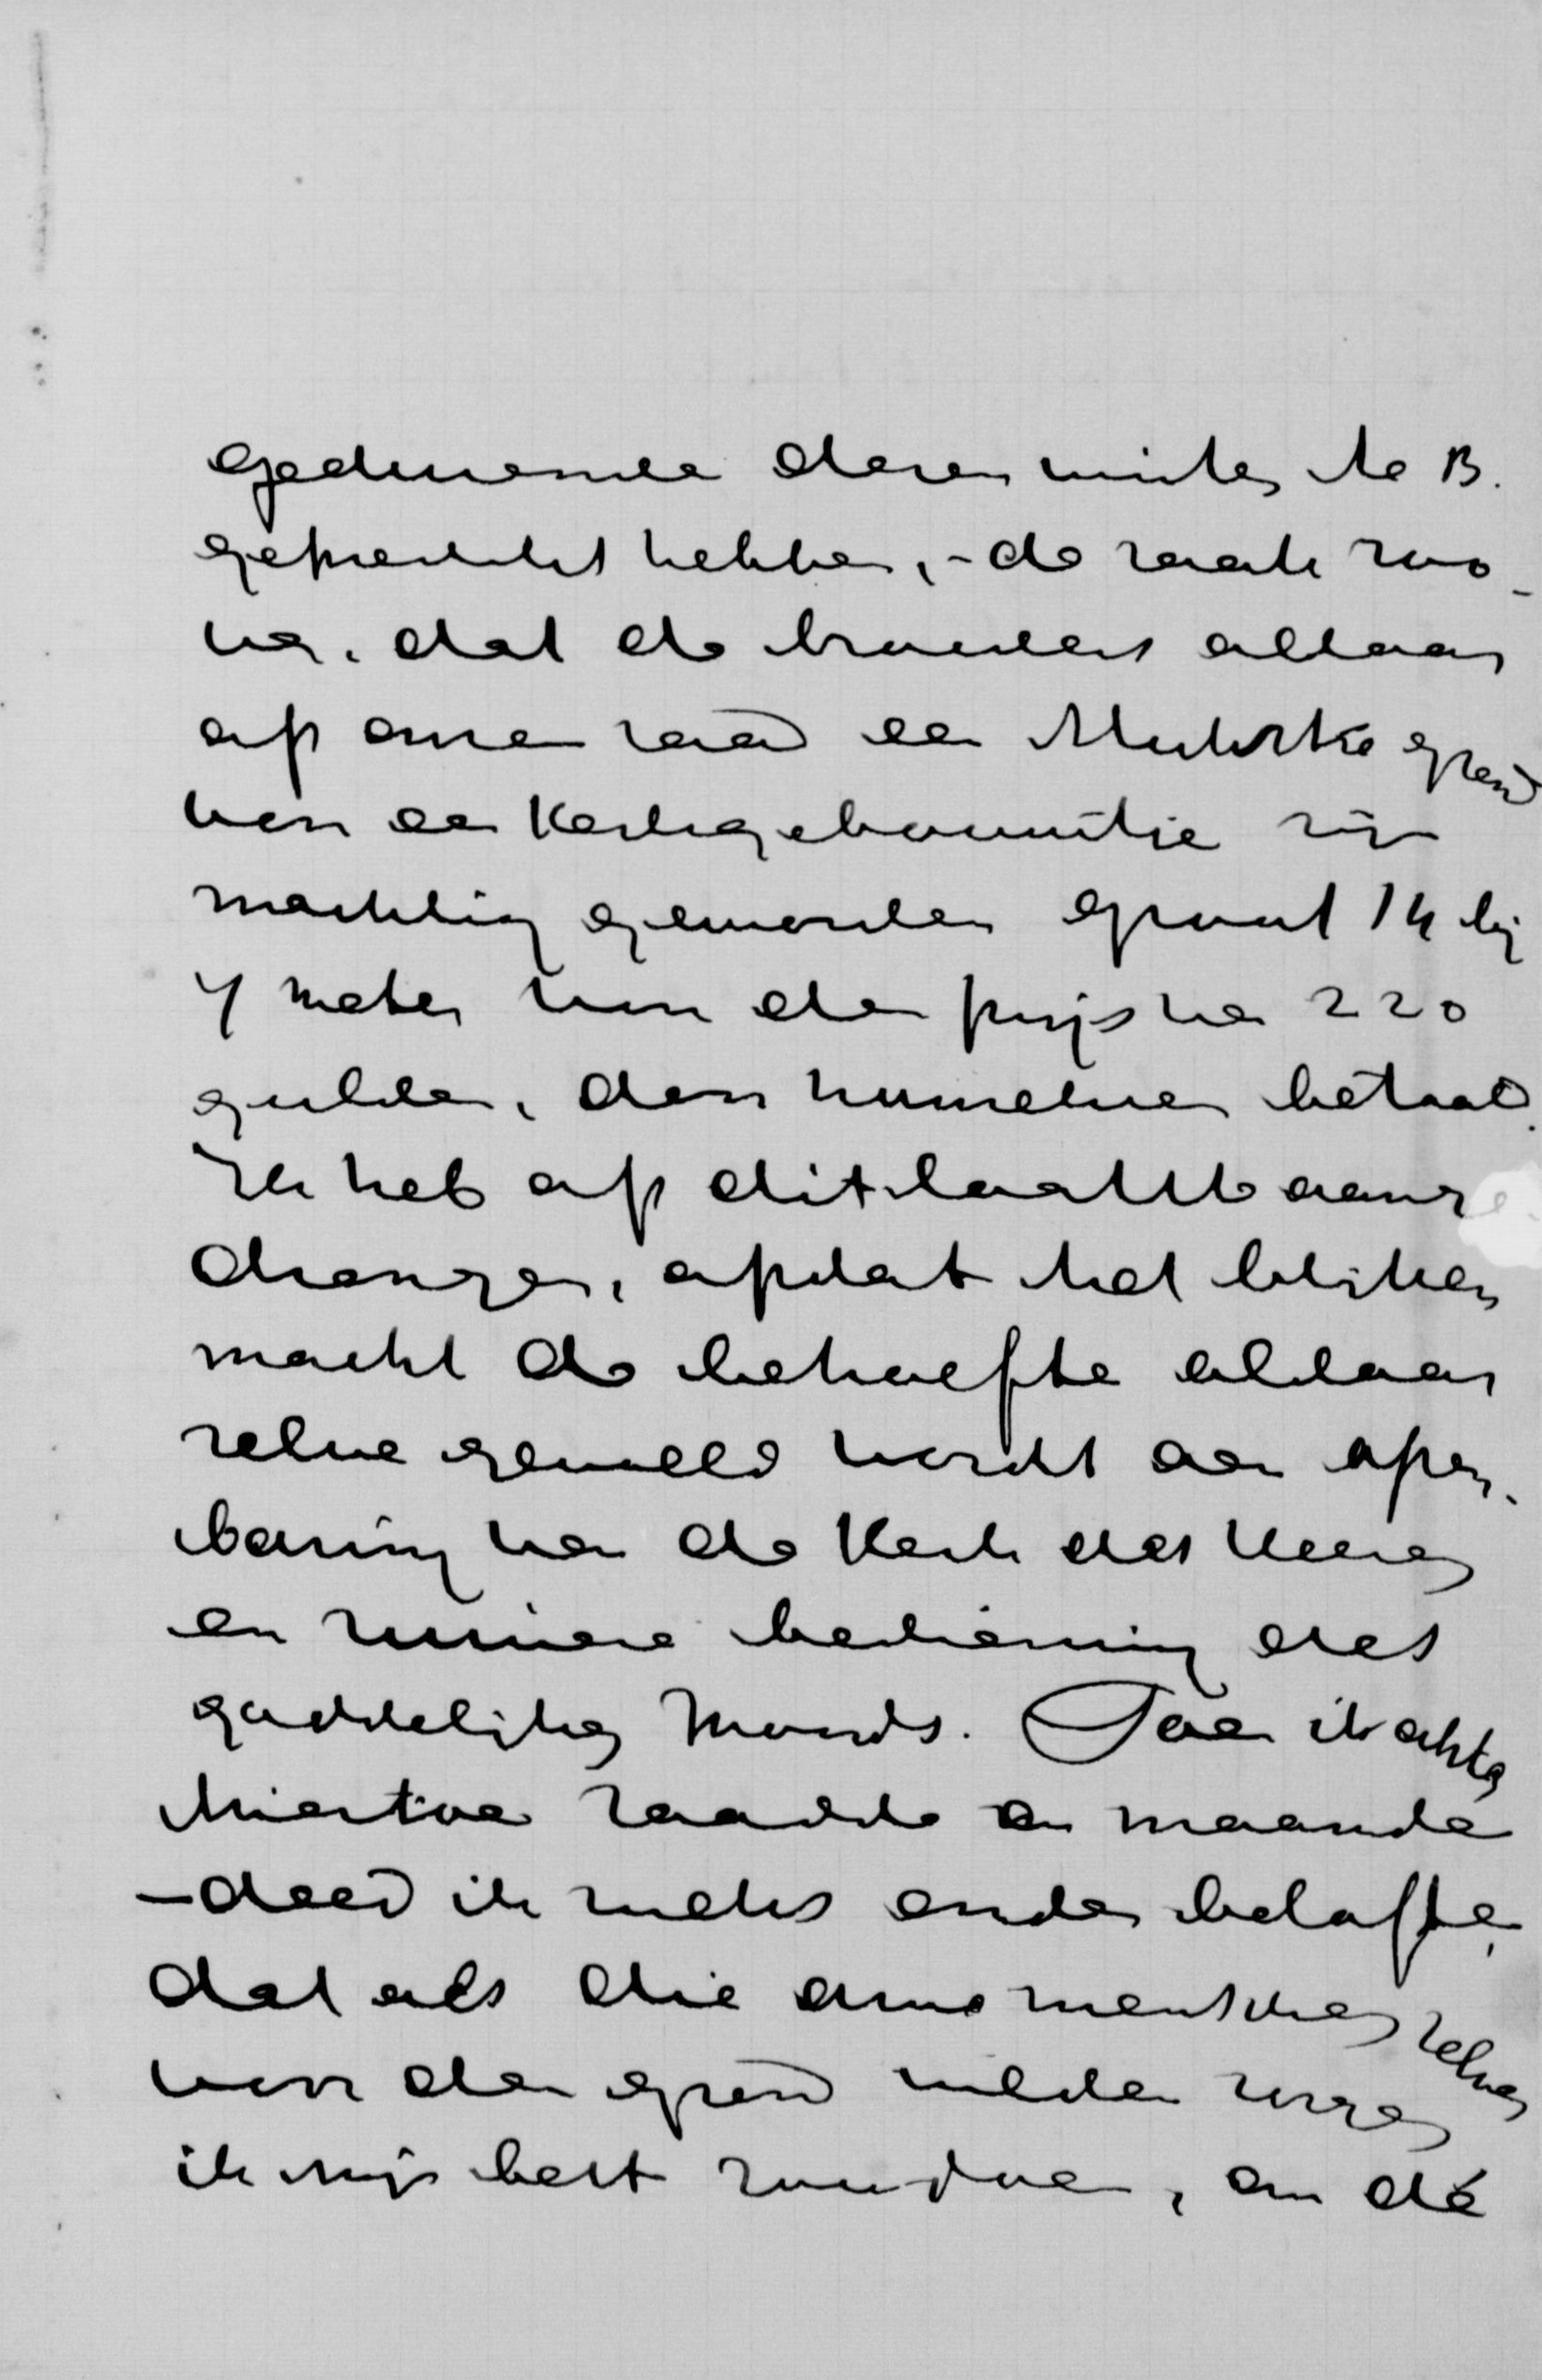 gedurende dezen winter te B.
gepreekt hebben, - de zaak zoo-
ver, dat de broeders aldaar
op onzen raad een stukske grond
voor een kerkgebouwtje zijn
machtig geworden groot 14 bij
7 meter voor den prijs van 220
gulden, door hunzelven betaald.
Ik heb op dit laatste aange-
drongen, opdat het blijken
mocht de behoefte aldaar
zelve gevoeld wordt aan open-
baring van de Kerk des Heeren
en zuivere bediening des
goddelijken Woords. Toen ik echter
hiertoe raadde en maande
- deed ik zulks onder belofte,
dat als die arme menschen zelven
voor den grond wilden zorgen
ik mijn best zou doen, om de